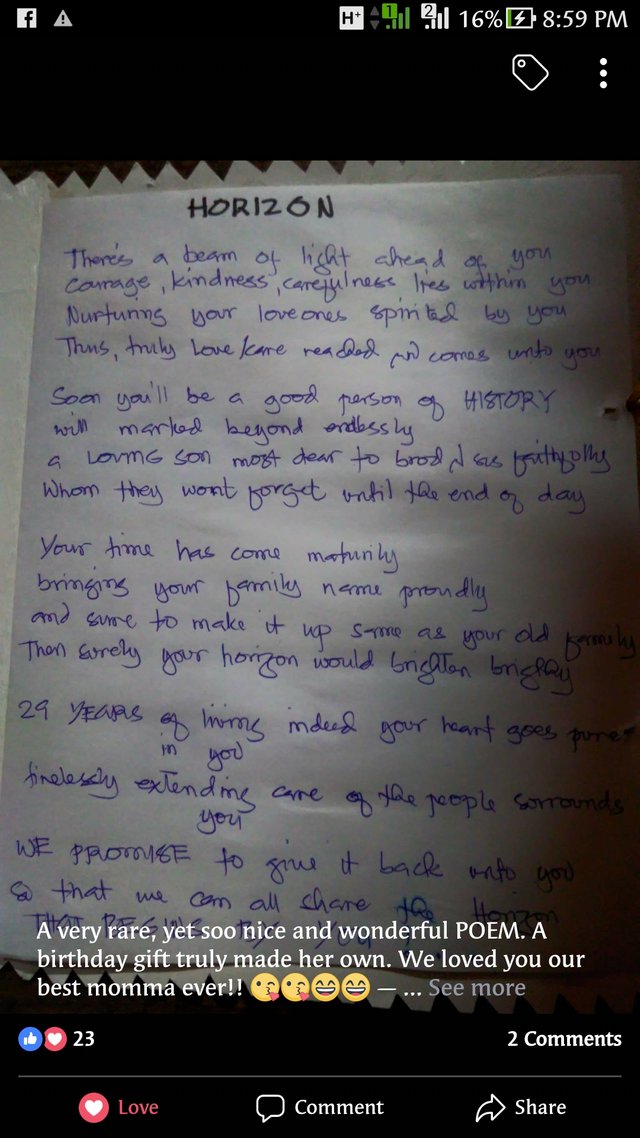 H+ 1 2 16% 8:59 PM
HORIZON
There's a beam of light ahead of you
Courage, kindness, carefulness lies within you
Nurturing your loveones spirited by you
Thus, truly Love/care reached and comes unto you
Soon you'll be a good person of HISTORY
will marked beyond endlessly
a LOVING son most dear to brod sis faithfully
Whom they wont forget until the end of day
Your time has come maturily
bringing your family name proudly
and sure to make it up same as your old family
Then surely your horizon would brighten brightly
29 YEARS of living indeed your heart goes purer
in you
tirelessly extending care of the people sorrounds
you
WE PROMISE to give it back unto you
so that we can all share the Horizon
THAT you
A very rare, yet soo nice and wonderful POEM. A
birthday gift truly made her own. We loved you our
best momma ever!! 😘😘😄😄 — ... See more
23 2 Comments
Love Comment Share